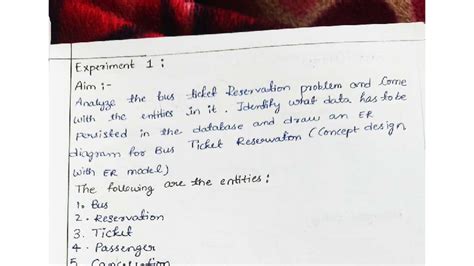 Experiment 1 :
Aim :-
Analyze the bus ticket Reservation problem and Come
with the entities in it. Identify what data has to be
persisted in the database and draw an ER
diagram for Bus Ticket Reservation (Concept design
with ER model)
The following are the entities :
1. Bus
2. Reservation
3. Ticket
4. Passenger
5 Cancellation